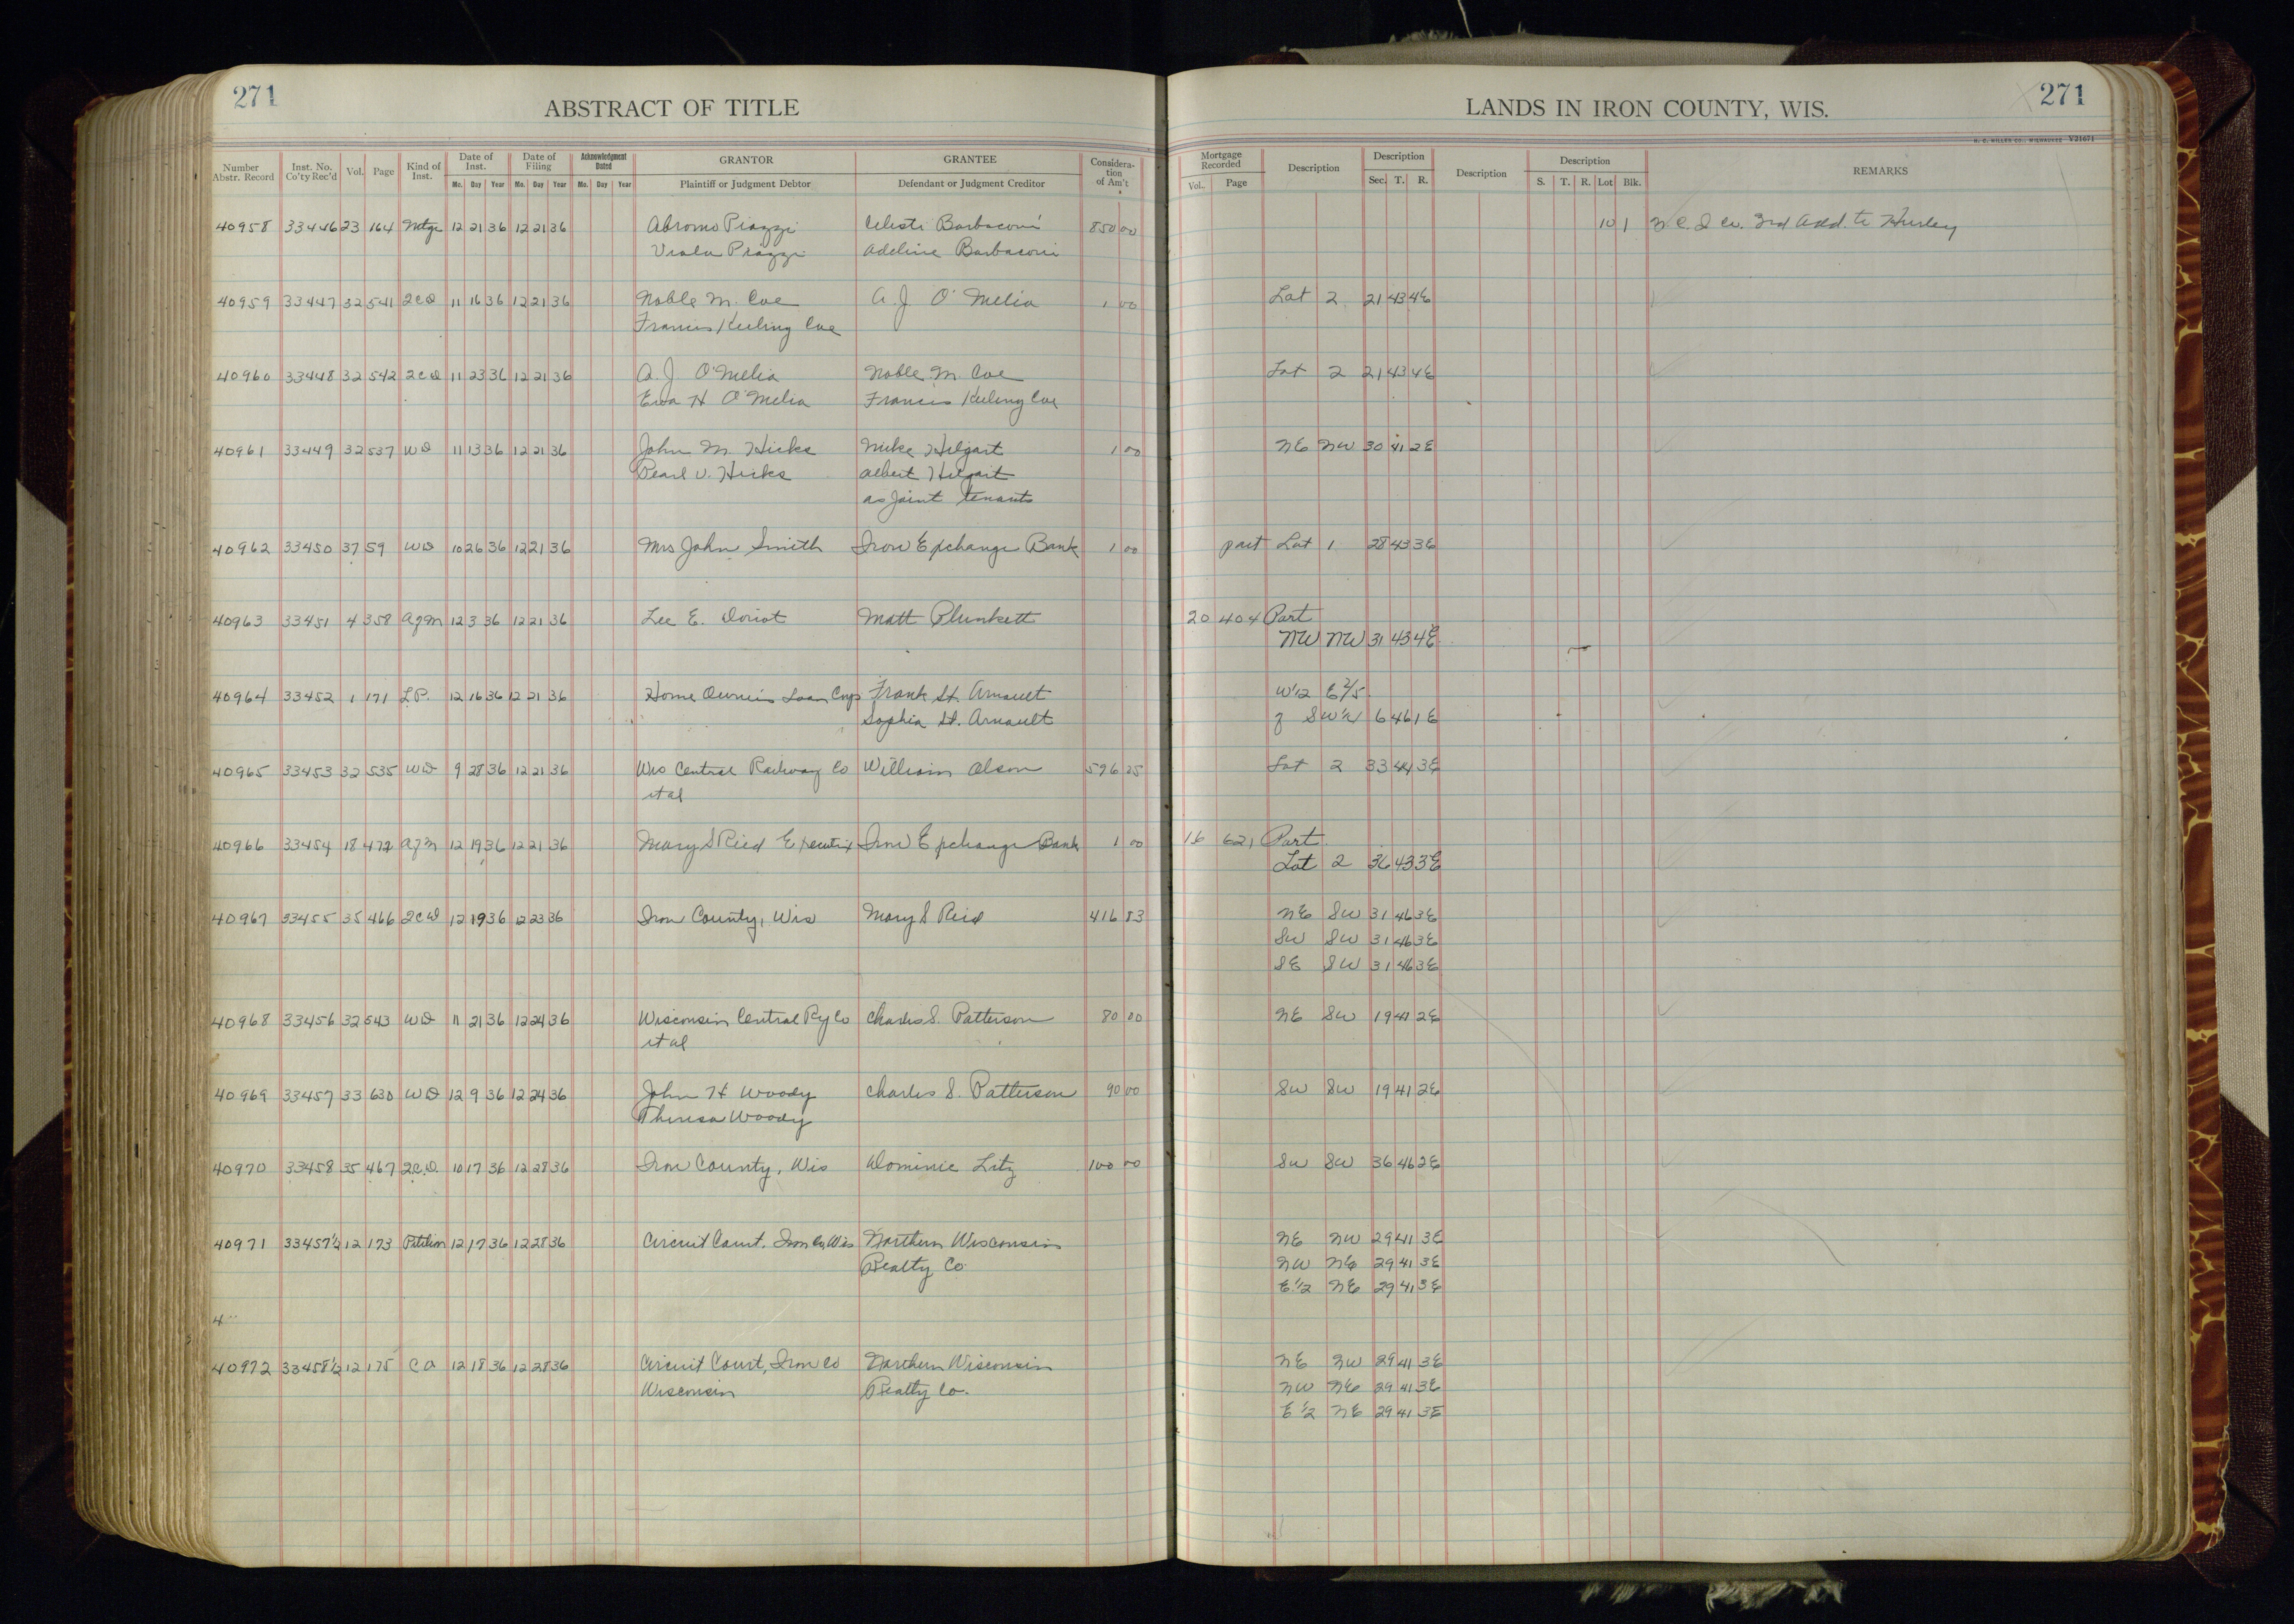 271
ABSTRACT OF TITLE
LANDS IN IRON COUNTY, WIS.
271
H. C. MILLER CO., MILWAUKEE V21671
Number Abstr. Record Inst. No. Co'ty Rec'd Vol. Page Kind of Inst. Date of Inst. Mo. Day Year Date of Filing Mo. Day Year Acknowledgment Dated Mo. Day Year GRANTOR Plaintiff or Judgment Debtor GRANTEE Defendant or Judgment Creditor Considera-tion of Am't Mortgage Recorded Vol. Page Description Description Sec. T. R. Description Description S. T. R. Lot Blk. REMARKS
40958 33446 23 164 Mtge 12 21 36 12 21 36 Abromo Piazzi Celeste Barbaconi 850 00 10 1 N.C.I. Co. 3rd Add. to Hurley
Viola Piazzi Adeline Barbaconi
40959 33447 32 541 2CD 11 16 36 12 21 36 Noble M. Coe A. J. O'Melia 1 00 Lot 2 21 43 4E
Francis Keeling Coe
40960 33448 32 542 2CD 11 23 36 12 21 36 A. J O'Melia Noble M. Coe Lot 2 21 43 4E
Eva H O'Melia Francis Keeling Coe
40961 33449 32 537 WD 11 13 36 12 21 36 John M. Hicks Mike Hilgart 1 00 NE NW 30 41 2E
Pearl V. Hicks Albert Hilgart
as Joint tenants
40962 33450 37 59 WD 10 26 36 12 21 36 Mrs John Smith Iron Exchange Bank 1 00 part Lot 1 28 43 3E
40963 33451 4 358 AJM 12 3 36 12 21 36 Lee E. Doriot Matt Plunkett 20 404 Part
NW NW 31 43 4E
40964 33452 1 171 L.P. 12 16 36 12 21 36 Home Owners Loan Corp Frank St. Arnault W1/2 E 2/5
Sophia St. Arnault of SW1/4 6 46 1E
40965 33453 32 535 WD 9 28 36 12 21 36 Wis Central Railway Co William Olson 596 25 Lot 2 33 44 3E
et al
40966 33454 18 472 AJM 12 19 36 12 21 36 Mary S Ried Executrix Iron Exchange Bank 1 00 16 621 Part
Lot 2 36 43 3E
40967 33455 35 466 2CD 12 19 36 12 23 36 Iron County, Wis Mary S Ried 416 83 NE SW 31 46 3E
SW SW 31 46 3E
SE SW 31 46 3E
40968 33456 32 543 WD 11 21 36 12 24 36 Wisconsin Central Ry Co Charles S. Patterson 80 00 NE SW 19 41 2E
et al
40969 33457 33 630 WD 12 9 36 12 24 36 John H Woody Charles S. Patterson 90 00 SW SW 19 41 2E
Theresa Woody
40970 33458 35 467 2C.D. 10 17 36 12 28 36 Iron County, Wis Dominic Litz 100 00 SW SW 36 46 2E
40971 33457½ 12 173 Petition 12 17 36 12 28 36 Circuit Court, Iron Co, Wis Northern Wisconsin NE NW 29 41 3E
Realty Co NW NE 29 41 3E
E1/2 NE 29 41 3E
4
40972 33458½ 12 175 CO 12 18 36 12 28 36 Circuit Court, Iron Co Northern Wisconsin NE NW 29 41 3E
Wisconsin Realty Co. NW NE 29 41 3E
E1/2 NE 29 41 3E